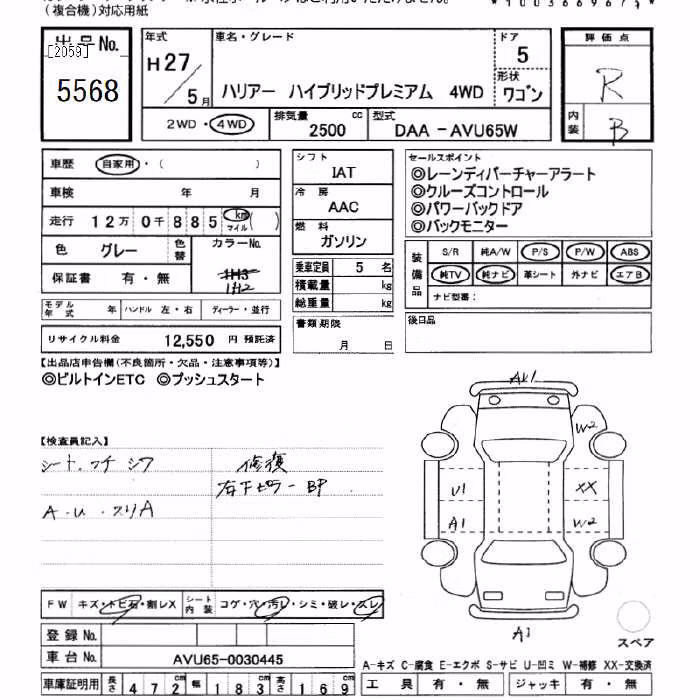 (複合機)対応用紙
*1003669673*
出品No.
[2059]
5568
年式
H27/5月
車名・グレード
ハリアー ハイブリッドプレミアム 4WD
ドア
5
形状
ワゴン
評価点
R
内装
B
2WD・4WD
排気量
2500 cc
型式
DAA-AVU65W
車歴 自家用・( )
車検 年 月
走行 12万0千885 km マイル ( )
色 グレー 色替
カラーNo.
1H2
保証書 有・無
モデル年式 年 ハンドル 左・右 ディーラー・並行
リサイクル料金 12,550 円 預託済
シフト
IAT
冷房
AAC
燃料
ガソリン
乗車定員 5 名
積載量 kg
総重量 kg
書類期限
月 日
セールスポイント
◎レーンディパーチャーアラート
◎クルーズコントロール
◎パワーバックドア
◎バックモニター
装備品
S/R 純A/W P/S P/W ABS
純TV 純ナビ 革シート 外ナビ エアB
ナビ型番:
後日品
【出品店申告欄(不良箇所・欠品・注意事項等)】
◎ビルトインETC ◎プッシュスタート
【検査員記入】
シート、フチ シワ 修復
A・U・スリA 右下ピラーBP
A1
W2
U1 XX
A1 W2
A1
スペア
FW キズ・トビ石・割レX シート内装 コゲ・穴・汚レ・シミ・破レ・スレ
登録No.
車台No. AVU65-0030445
車庫証明用 長さ 472 幅 183 高さ 169
A-キズ C-腐食 E-エクボ S-サビ U-凹ミ W-補修 XX-交換済
工具 有・無 ジャッキ 有・無